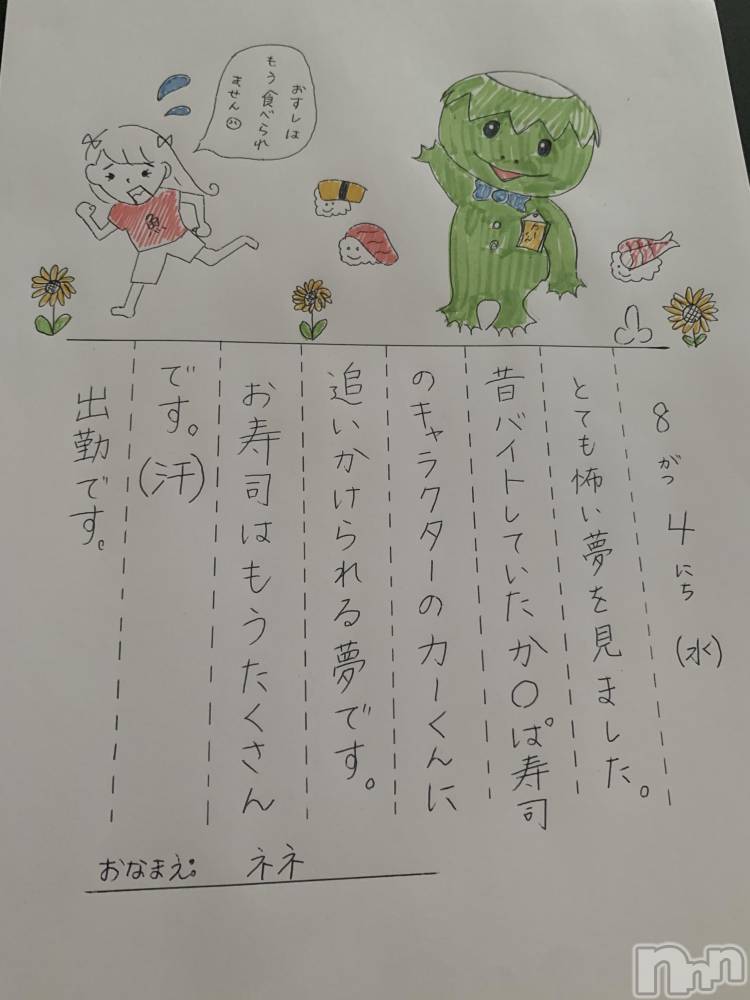 おすしは
もう食べられ
ません
かーくん
魚
8がつ4にち(水)
とても怖い夢を見ました。
昔バイトしていたか〇ぱ寿司
のキャラクターのカーくんに
追いかけられる夢です。
お寿司はもうたくさん
です。(汗)
出勤です。
おなまえ。 ネネ
nnn